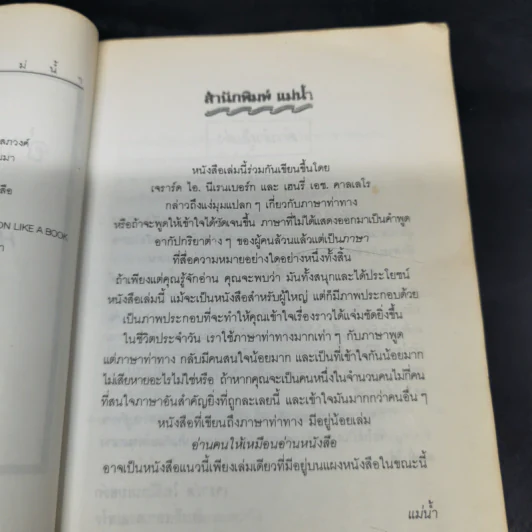 ม่ นี้
สำนักพิมพ์ แม่น้ำ
หนังสือเล่มนี้ร่วมกันเขียนขึ้นโดย
เจราร์ด ไอ. นีเรนเบอร์ก และ เฮนรี่ เอช. คาลเลโร
กล่าวถึงแง่มุมแปลก ๆ เกี่ยวกับภาษาท่าทาง
หรือถ้าจะพูดให้เข้าใจได้ชัดเจนขึ้น ภาษาที่ไม่ได้แสดงออกมาเป็นคำพูด
อากัปกริยาต่าง ๆ ของผู้คนล้วนแล้วแต่เป็นภาษา
ที่สื่อความหมายอย่างใดอย่างหนึ่งทั้งสิ้น
ถ้าเพียงแต่คุณรู้จักอ่าน คุณจะพบว่า มันทั้งสนุกและได้ประโยชน์
หนังสือเล่มนี้ แม้จะเป็นหนังสือสำหรับผู้ใหญ่ แต่ก็มีภาพประกอบด้วย
เป็นภาพประกอบที่จะทำให้คุณเข้าใจเรื่องราวได้แจ่มชัดยิ่งขึ้น
ในชีวิตประจำวัน เราใช้ภาษาท่าทางมากเท่า ๆ กับภาษาพูด
แต่ภาษาท่าทาง กลับมีคนสนใจน้อยมาก และเป็นที่เข้าใจกันน้อยมาก
ไม่เสียหายอะไรไม่ใช่หรือ ถ้าหากคุณจะเป็นคนหนึ่งในจำนวนคนไม่กี่คน
ที่สนใจภาษาอันสำคัญยิ่งที่ถูกละเลยนี้ และเข้าใจมันมากกว่าคนอื่น ๆ
หนังสือที่เขียนถึงภาษาท่าทาง มีอยู่น้อยเล่ม
อ่านคนให้เหมือนอ่านหนังสือ
อาจเป็นหนังสือแนวนี้เพียงเล่มเดียวที่มีอยู่บนแผงหนังสือในขณะนี้
แม่น้ำ
ON LIKE A BOOK